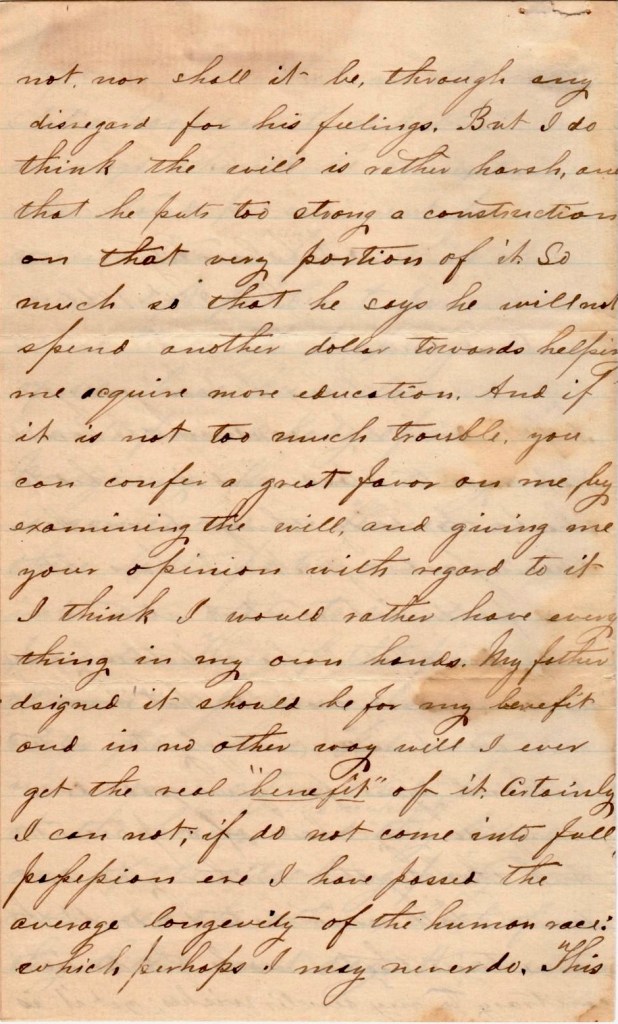 not, nor shall it be, through any
disregard for his feelings. But I do
think the will is rather harsh, and
that he puts too strong a construction
on that very portion of it. So
much so that he says he will not
spend another dollar towards helping
me acquire more education. And if
it is not too much trouble, you
can confer a great favor on me by
examining the will, and giving me
your opinion with regard to it
I think I would rather have every
thing in my own hands. My father
dsigned it should be for my benefit
and in no other way will I ever
get the real "benefit" of it. Certainly
I can not; if do not come into full
possession ere I have passed the
average longevity of the human race:
which perhaps I may never do. "This